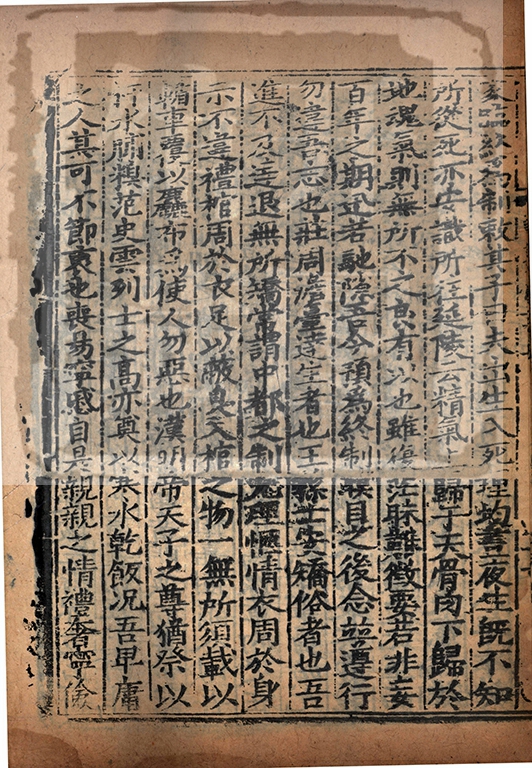 臨終為制敕其子曰夫出生入死理均晝夜生既不知
所從死亦安識所往延陵云精氣上歸于天骨肉下歸於
地魂氣則無所不之良有以也雖復茫昧難徵要若非妄
百年之期迅若馳隙吾今預為終制瞑目之後念並遵行
勿違吾志也莊周澹臺達生者也王孫士安矯俗者也吾
進不及達退無所矯常謂中都之制允理愜情衣周於身
示不違禮棺周於衣足以蔽臭入棺之物一無所須載以
輴車覆以麤布為使人勿惡也漢明帝天子之尊猶祭以
杅水脯糗范史雲列士之高亦奠以寒水乾飯況吾卑庸
之人其可不節衷也喪易寧慼自是親親之情禮奢寧儉